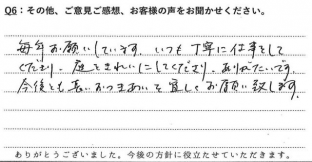 Q6：その他、ご意見ご感想、お客様の声をお聞かせください。
毎年お願いしています。いつも丁寧に仕事をして
くださり、庭をきれいにしてくださり、ありがたいです。
今後とも長いおつきあいを宜しくお願い致します。
ありがとうございました。今後の方針に役立たせていただきます。